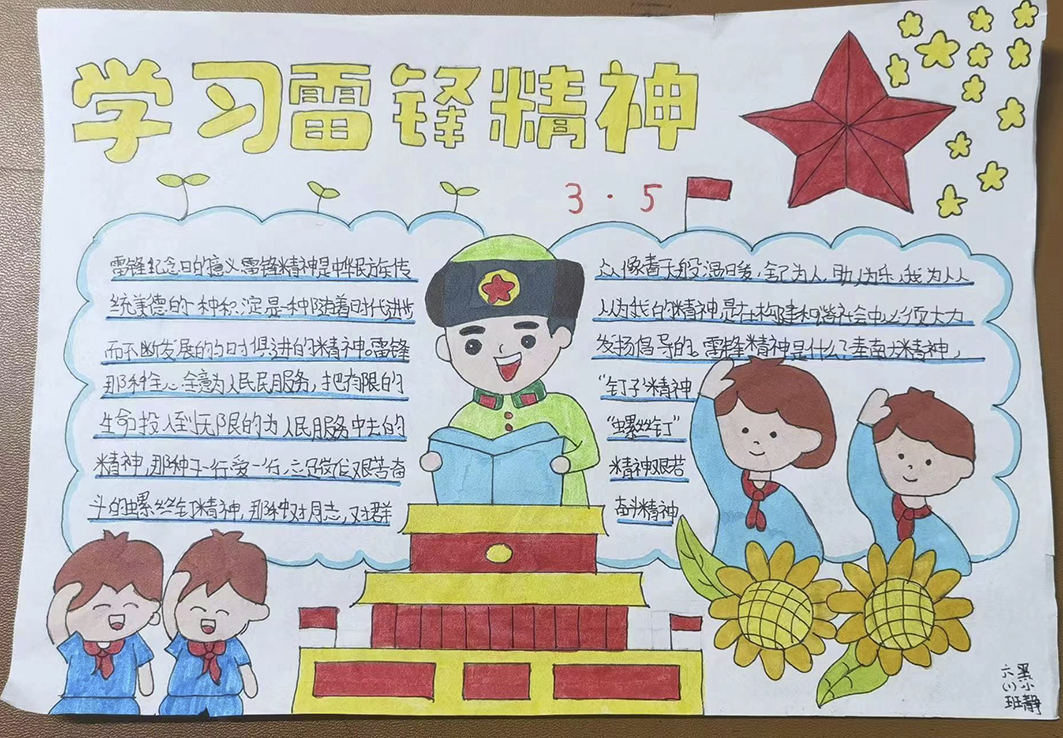 学习雷锋精神
3·5
雷锋纪念日的意义雷锋精神是中华民族传
统美德的一种积淀是一种随着时代进步
而不断发展的与时俱进的精神。雷锋
那种全心全意为人民服务，把有限的
生命投入到无限的为人民服务中去的
精神，那种干一行爱一行，立足岗位艰苦奋
斗的螺丝钉精神，那种对同志，对群
众像春天般温暖，舍己为人，助人为乐，我为人人
人人为我的精神是在构建和谐社会中必须大力
发扬倡导的。雷锋精神是什么？奉献精神，
"钉子"精神
"螺丝钉"
精神艰苦
奋斗精神
六(1)班
小静